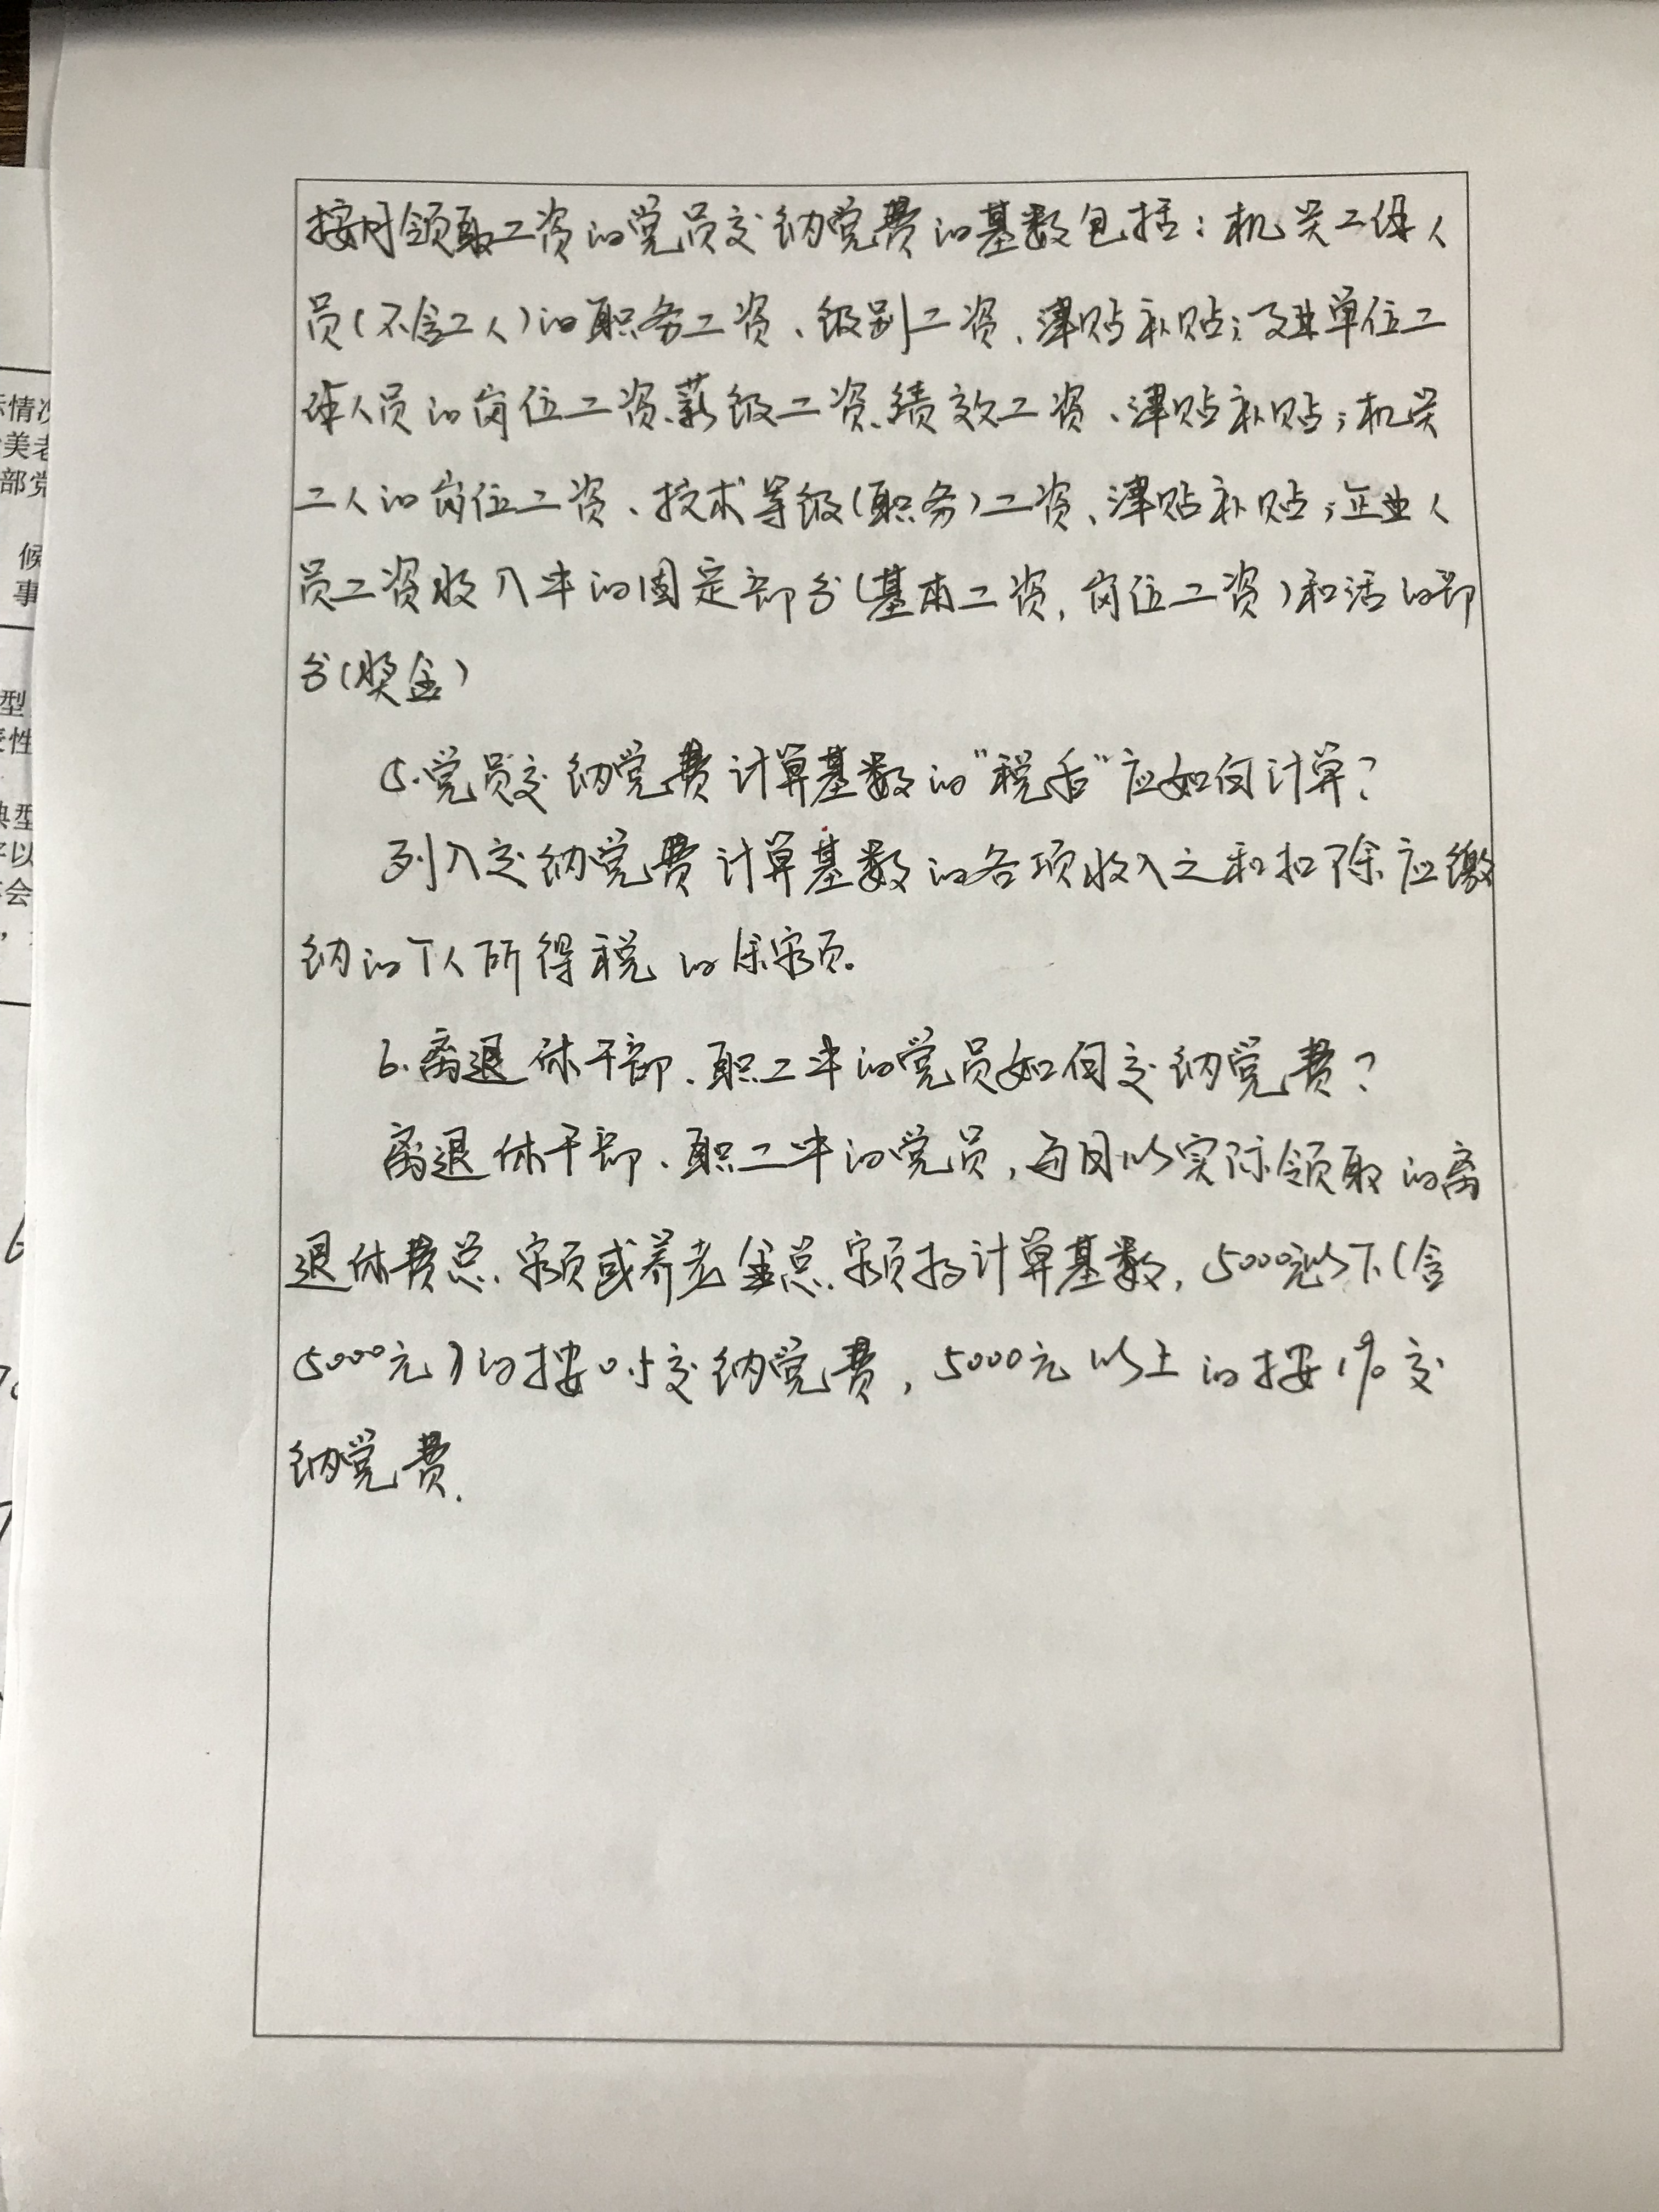 按月领取工资的党员交纳党费的基数包括：机关工作人
员（不含工人）的职务工资、级别工资、津贴补贴；事业单位工
作人员的岗位工资、薪级工资、绩效工资、津贴补贴；机关
工人的岗位工资、技术等级（职务）工资、津贴补贴；企业人
员工资收入中的固定部分（基本工资，岗位工资）和活的部
分（奖金）
5.党员交纳党费计算基数的“税后”应如何计算？
列入交纳党费计算基数的各项收入之和扣除应缴
纳的个人所得税的余额。
6.离退休干部、职工中的党员如何交纳党费？
离退休干部、职工中的党员，每月以实际领取的离
退休费总额或养老金总额为计算基数，5000元以下（含
5000元）的按0.5交纳党费，5000元以上的按1%交
纳党费.
示情况
美老
部党
候
事
型
性
典型
以
会